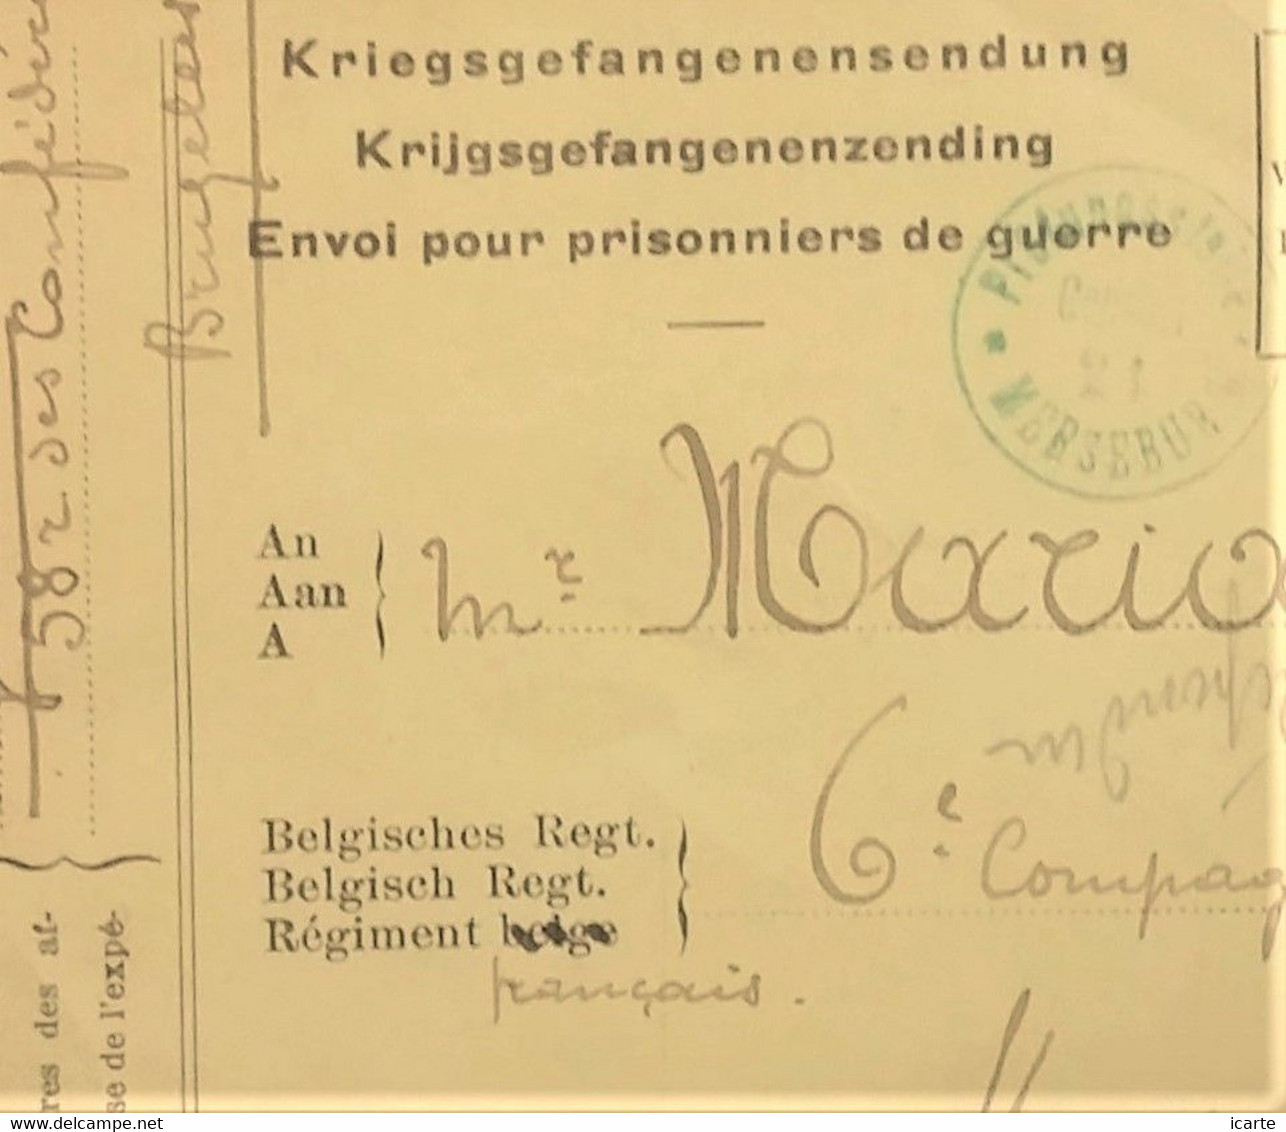 Kriegsgefangenensendung
Krijgsgefangenenzending
Envoi pour prisonniers de guerre
MERSEBUR
21
An
Aan
A
Mr Maria
Belgisches Regt.
Belgisch Regt.
Régiment belge
français.
6e Compag
58 r des Confédér
Bruxelles
res des af-
se de l'expé-
www.delcampe.net
icarte